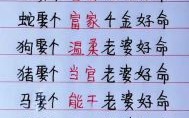 蛇娶个富家千金好命
狗娶个温柔老婆好命
猪娶个当官老婆好命
马娶个能干老婆好命